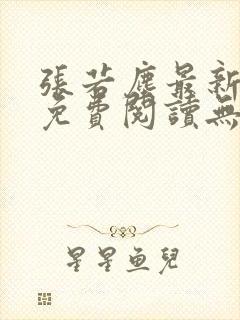 張若塵最新
免費閱讀無
星星魚兒